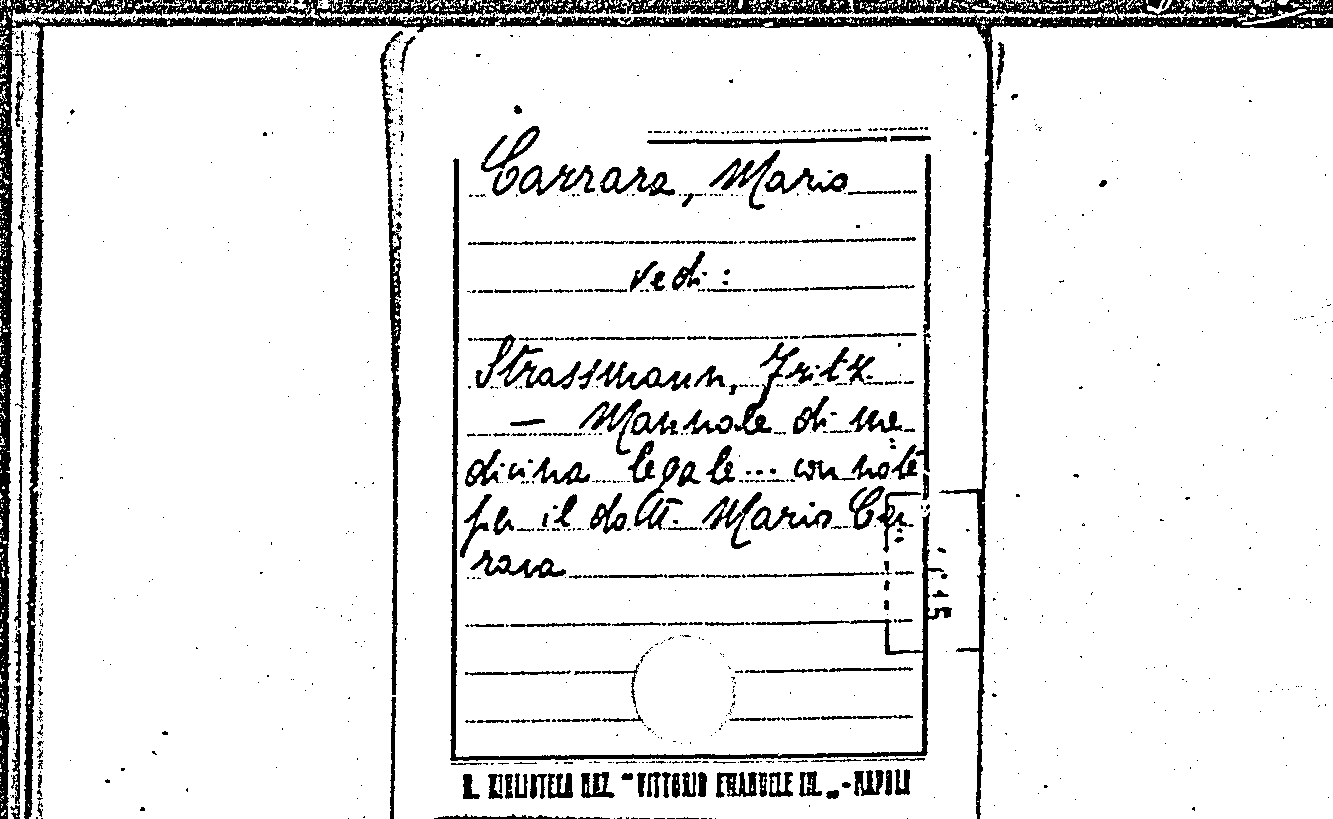 Carrara, Mario
vedi:
Strassmann, Fritz
— Manuale di me
dicina legale... con note
per il dott. Mario Car
rara
R. BIBLIOTECA NAZ. "VITTORIO EMANUELE III" - NAPOLI